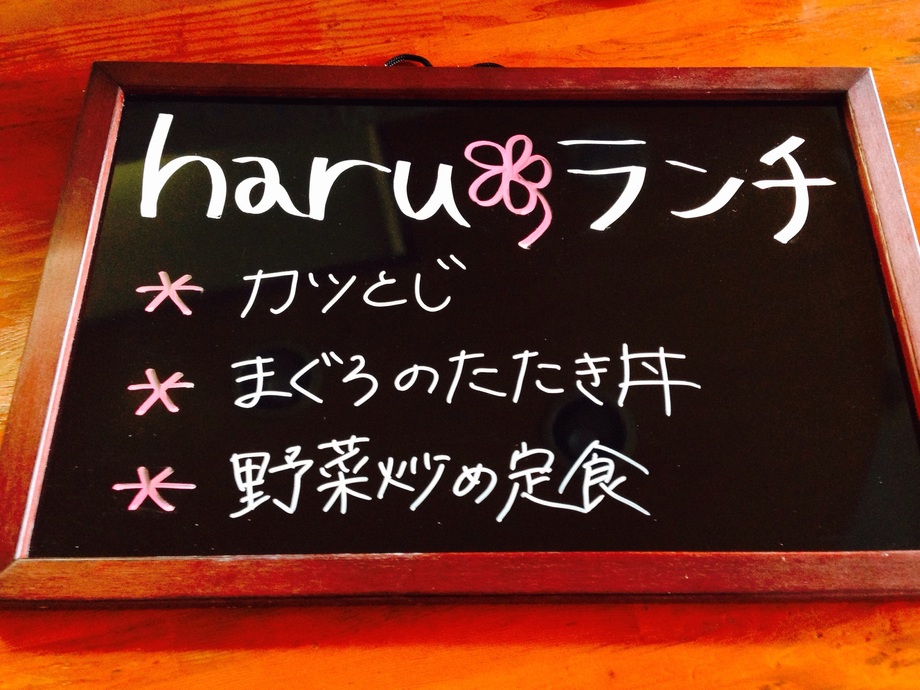 haru ランチ
* カツとじ
* まぐろのたたき丼
* 野菜炒め定食